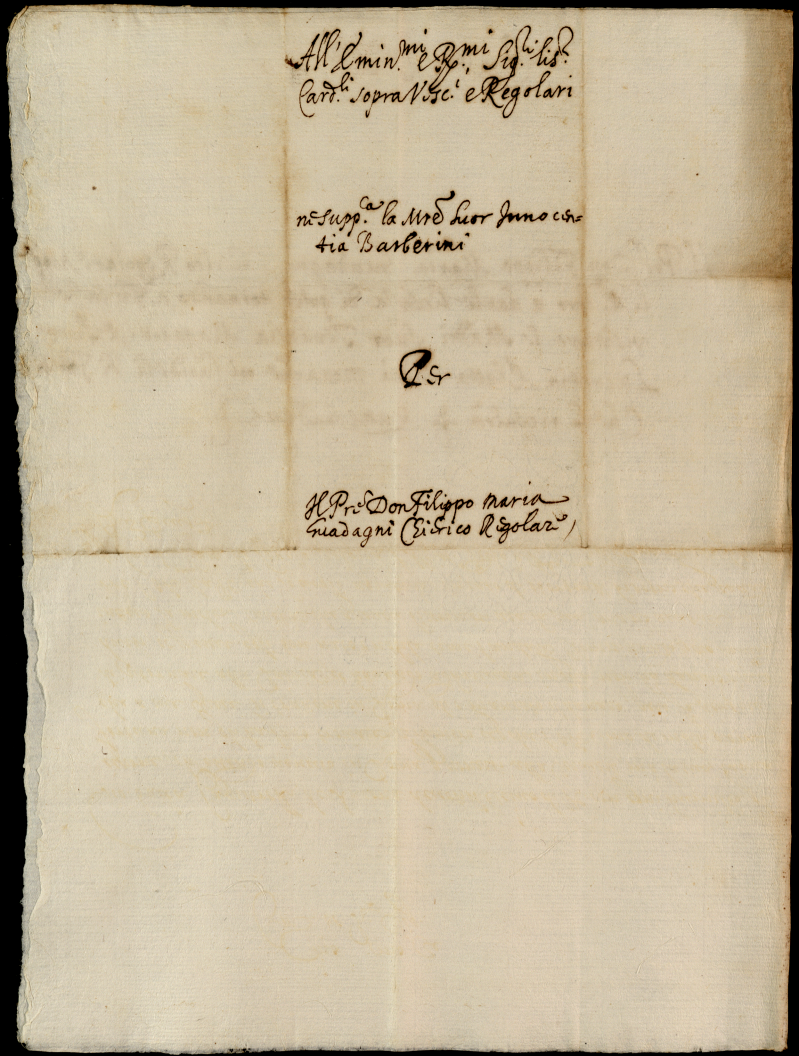 All' Emin.mi e R.mi Sig.ri li s.ri
Card.li sopra Vesc.i e Regolari
ne supp.ca la Mre Suor Innocen=
tia Barberini
Per
Il Pre Don Filippo Maria
Guadagni Chierico Regolare